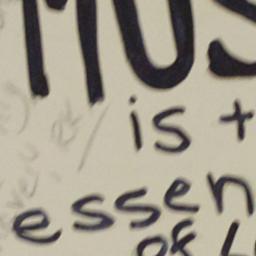 MUS
is t
essen
of L